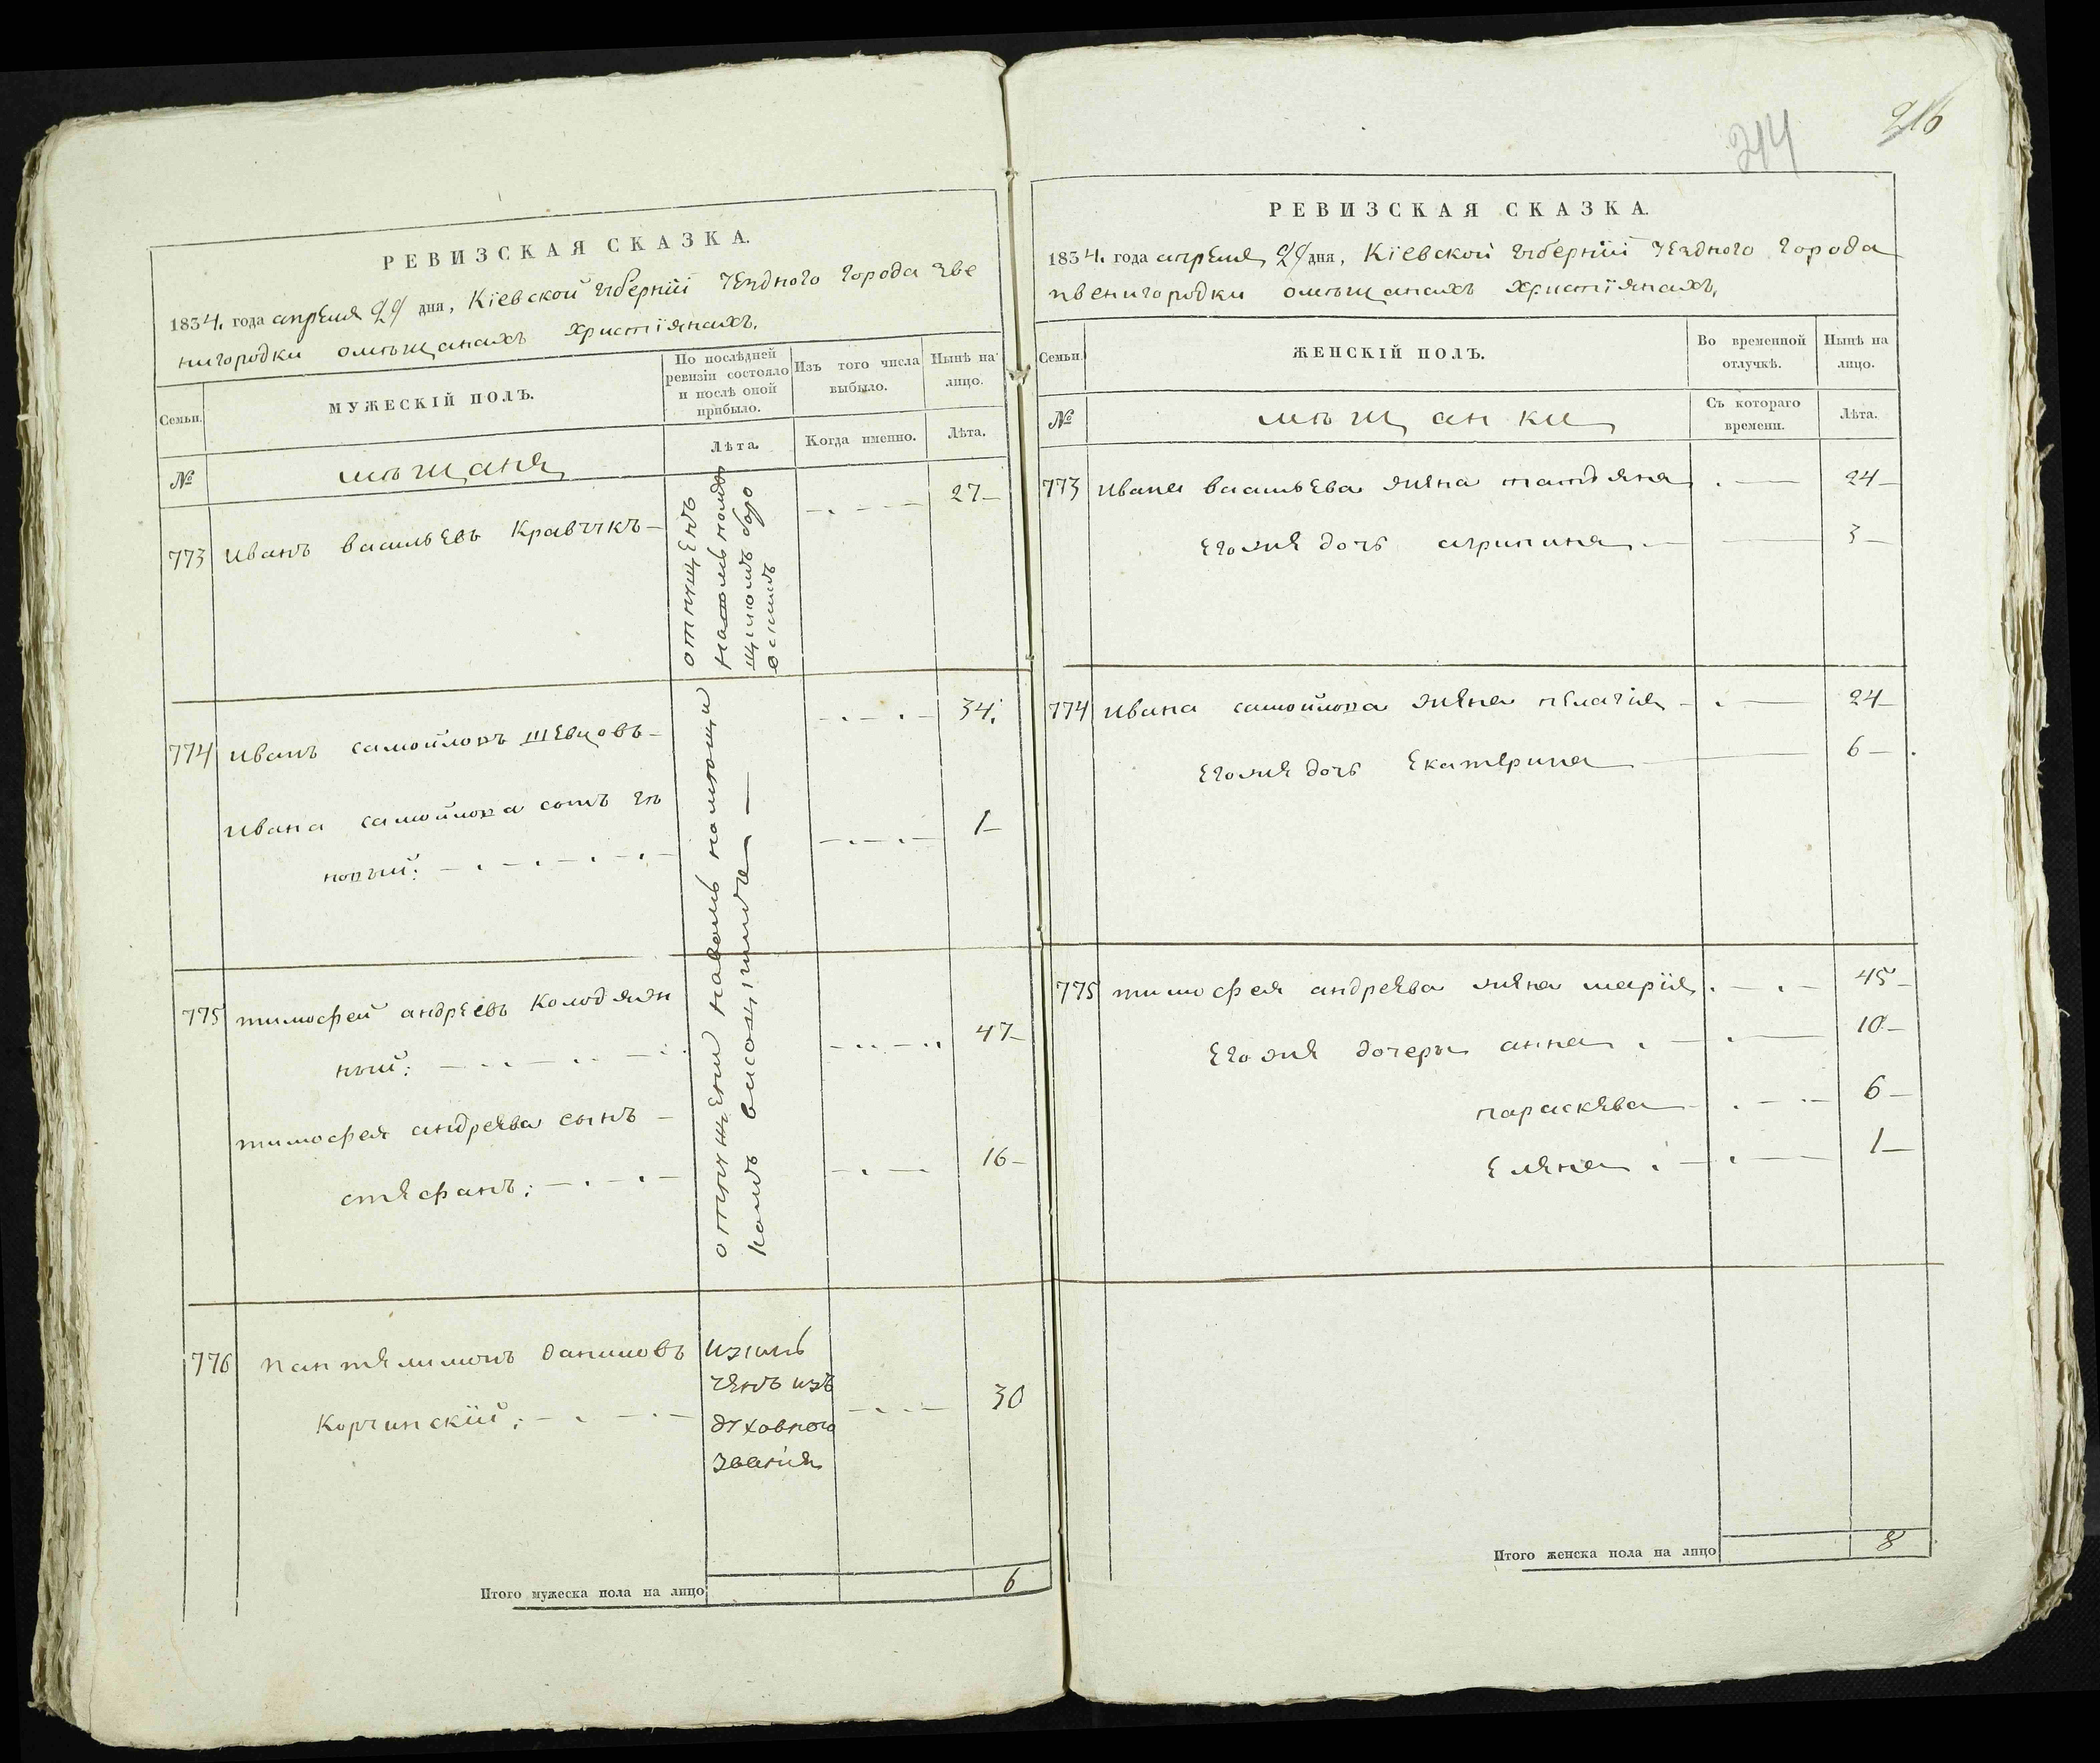 216
214
РЕВИЗСКАЯ СКАЗКА.
1834. года апреля 29 дня, Кіевской губерніи уезднаго города зве
нигородки омѣщанахъ христіянахъ.
Семьи.
МУЖЕСКІЙ ПОЛЪ.
По послѣдней
ревизіи состояло
и послѣ оной
прибыло.
Изъ того числа
выбыло.
Нынѣ на
лицо.
Лѣта.
Когда именно.
Лѣта.
№
мѣщаня
773 Иванъ васильевъ Кравчукъ — 27
отпущенъ
774 Иванъ самойловъ Шевцовъ — 34.
Ивана самойлова сынъ
1
775 тимофей андреевъ Колодяж
ный: 47
тимофея андреева сынъ —
стефанъ: 16
отпущени наволь
776 пантелимонъ даниловъ
Корчинскій: 30
изклю
ченъ изъ
духовного
званія
Итого мужеска пола на лицо 6
РЕВИЗСКАЯ СКАЗКА.
1834. года апреля 29 дня, Кіевской губерніи уезднаго города
звенигородки омѣщанахъ христіянахъ.
Семьи.
ЖЕНСКІЙ ПОЛЪ.
Во временной
отлучкѣ.
Нынѣ на
лицо.
№
мѣщанки
Съ котораго
времени.
Лѣта.
773 Ивана васильева жена татьяна 24
Егоже дочь агрипина 3
774 Ивана самойлова жена пелагія 24
Егоже дочь Екатерина 6
775 тимофея андреева жена марія 45
Егоже дочери анна 10
параскева 6
Елена 1
Итого женска пола на лицо 8